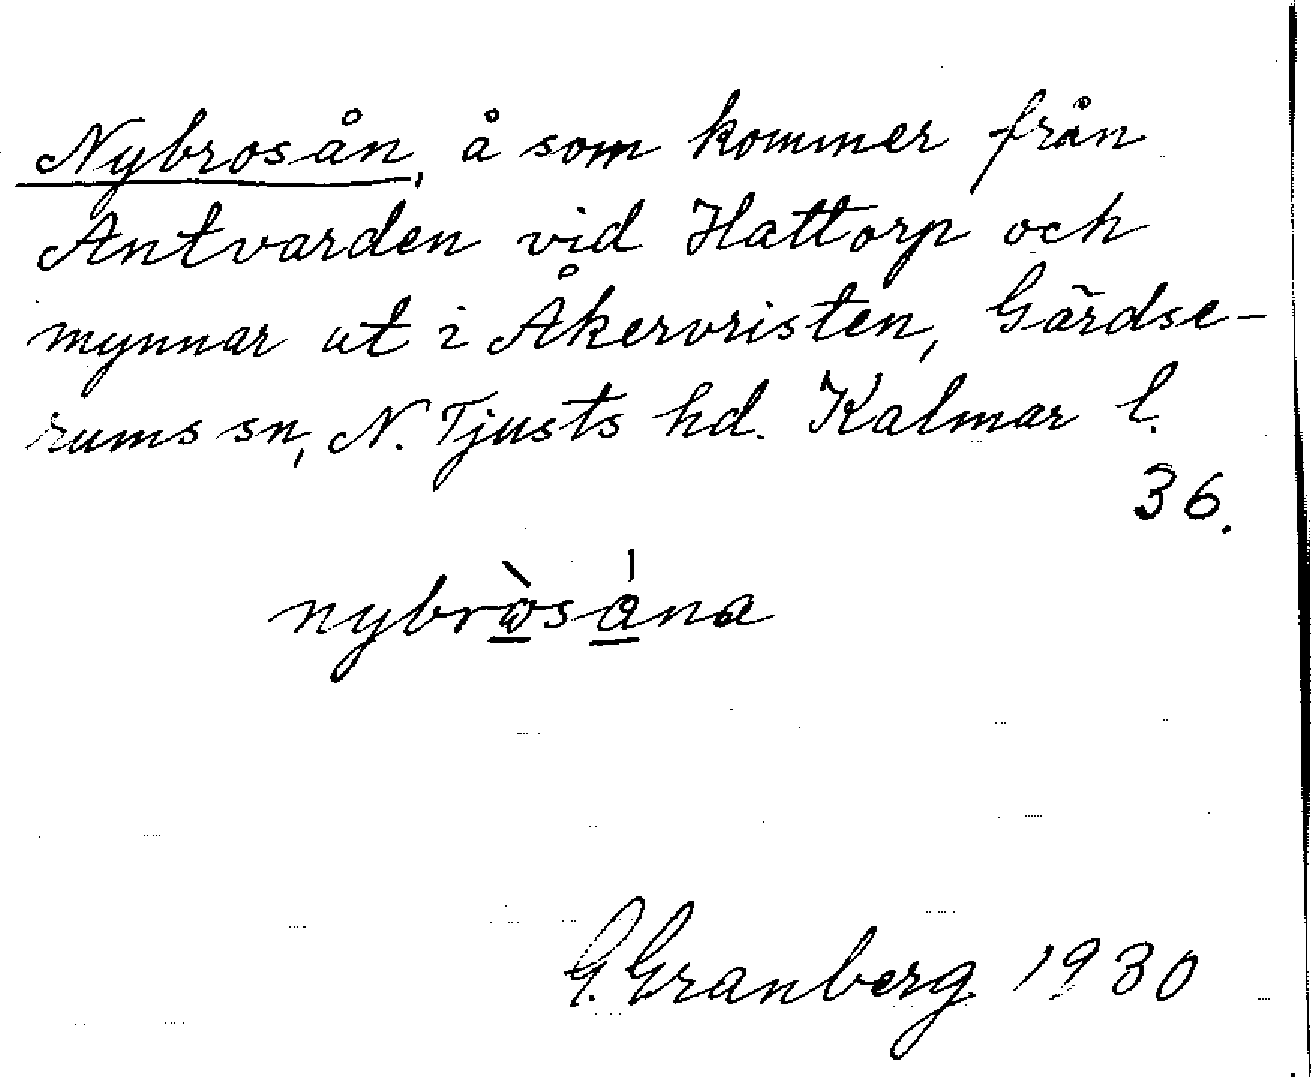 Nybrosån, å som kommer från
Antvarden vid Hattorp och
mynnar ut i Åkervristen, Gärdse-
rums sn, N. Tjusts hd. Kalmar l.
36.
nybròsána
G. Granberg 1930